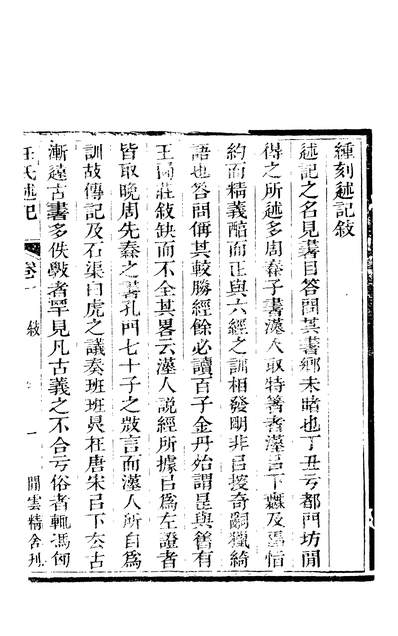 緟刻述記敘
述記之名見書目答問其書鄉未睹也丁丑亏都門坊閒
得之所述多周秦子書漢人取特箸者漢㠯下繼及焉恉
約而精義醇而正與六經之訓相發明非㠯捘奇嗣獵綺
語也答問偁其較勝經餘必讀百子金丹始謂是與舊有
王昌莊敘缺而不全其畧云漢人説經所據㠯爲左證者
皆取晚周先秦之書孔門七十子之㪚言而漢人所自爲
訓故傳記及石渠白虎之議奏班班具在唐宋㠯下厺古
漸遠古書多佚斅者罕見凡古義之不合亏俗者輒馮匈
任氏述記
卷一
敘
一
閒雲精舍刋